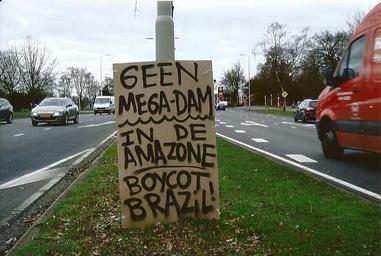 GEEN
MEGA-DAM
IN DE
AMAZONE
BOYCOT
BRAZIL!